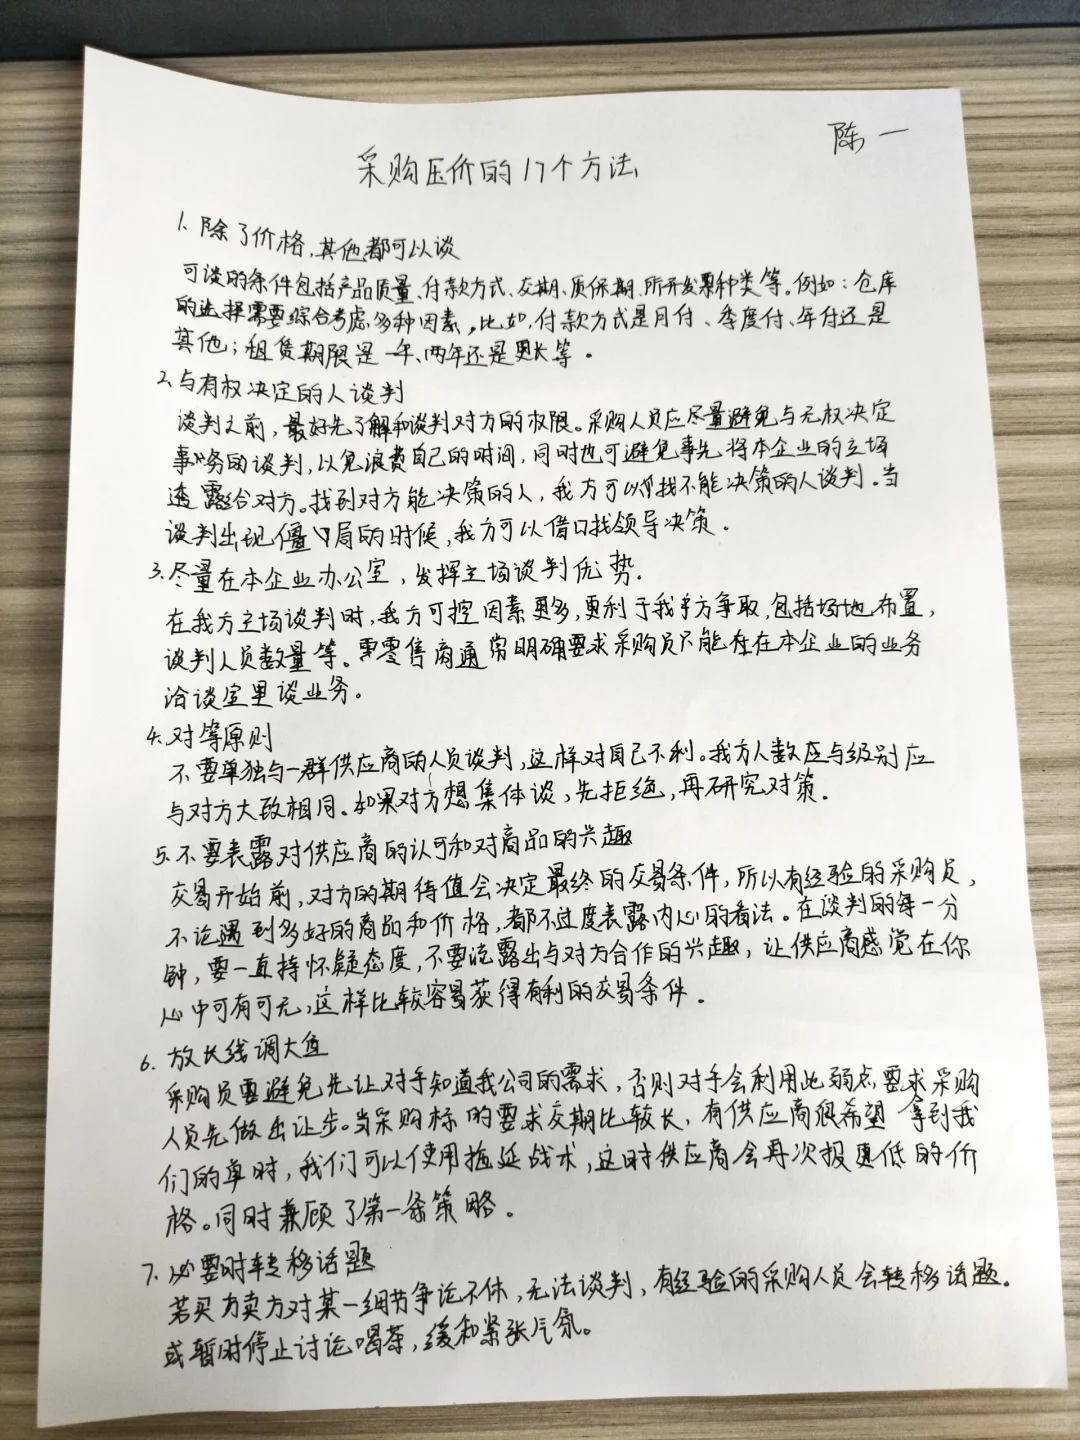 陈一
采购压价的17个方法
1、除了价格,其他都可以谈
可谈的条件包括产品质量、付款方式、交期、质保期、所开发票种类等。例如:仓库
的选择需要综合考虑多种因素。比如,付款方式是月付、季度付、年付还是
其他;租赁期限是一年、两年还是更长等。
2、与有权决定的人谈判
谈判之前,最好先了解和谈判对方的权限。采购人员应尽量避免与无权决定
事务的谈判,以免浪费自己的时间,同时也可避免事先将本企业的立场
透露给对方。找到对方能决策的人,我方可以找不能决策的人谈判。当
谈判出现僵局的时候,我方可以借口找领导决策。
3.尽量在本企业办公室,发挥主场谈判优势.
在我方主场谈判时,我方可控因素更多,更利于我方争取,包括场地布置,
谈判人员数量等。零售商通常明确要求采购员只能在本企业的业务
洽谈室里谈业务。
4.对等原则
不要单独与一群供应商的人员谈判,这样对自己不利。我方人数应与级别应
与对方大致相同。如果对方想集体谈,先拒绝,再研究对策.
5.不要表露对供应商的认可和对商品的兴趣
交易开始前,对方的期待值会决定最终的交易条件,所以有经验的采购员,
不论遇到多好的商品和价格,都不过度表露内心的看法。在谈判的每一分
钟,要一直持怀疑态度,不要流露出与对方合作的兴趣,让供应商感觉在你
心中可有可无,这样比较容易获得有利的交易条件。
6.放长线调大鱼
采购员要避免先让对手知道我公司的需求,否则对手会利用此弱点要求采购
人员先做出让步。当采购标的要求交期比较长,有供应商很希望拿到我
们的单时,我们可以使用拖延战术,这时供应商会再次报更低的价
格。同时兼顾了第一条策略。
7.必要时转移话题
若买方卖方对某一细节争论不休,无法谈判,有经验的采购人员会转移话题.
或暂时停止讨论喝茶,缓和紧张气氛。